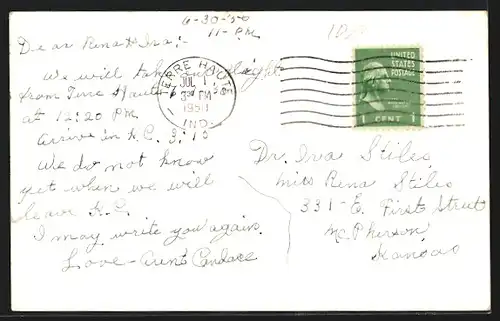 6-30-50
11-PM.
Dear Rena & Ira:-
We will take
from Terre Haute
at 12:20 PM.
Arrive in K.C.
We do not know
yet when we will
leave K.C.
I may write you again.
Love - Aunt Candace
TERRE HAUTE
JUL 1
PM
IND.
UNITED
STATES
POSTAGE
1 CENT 1
Dr. Ira Stiles,
Miss Rena Stiles
331-E. First Street
McPherson
Kansas